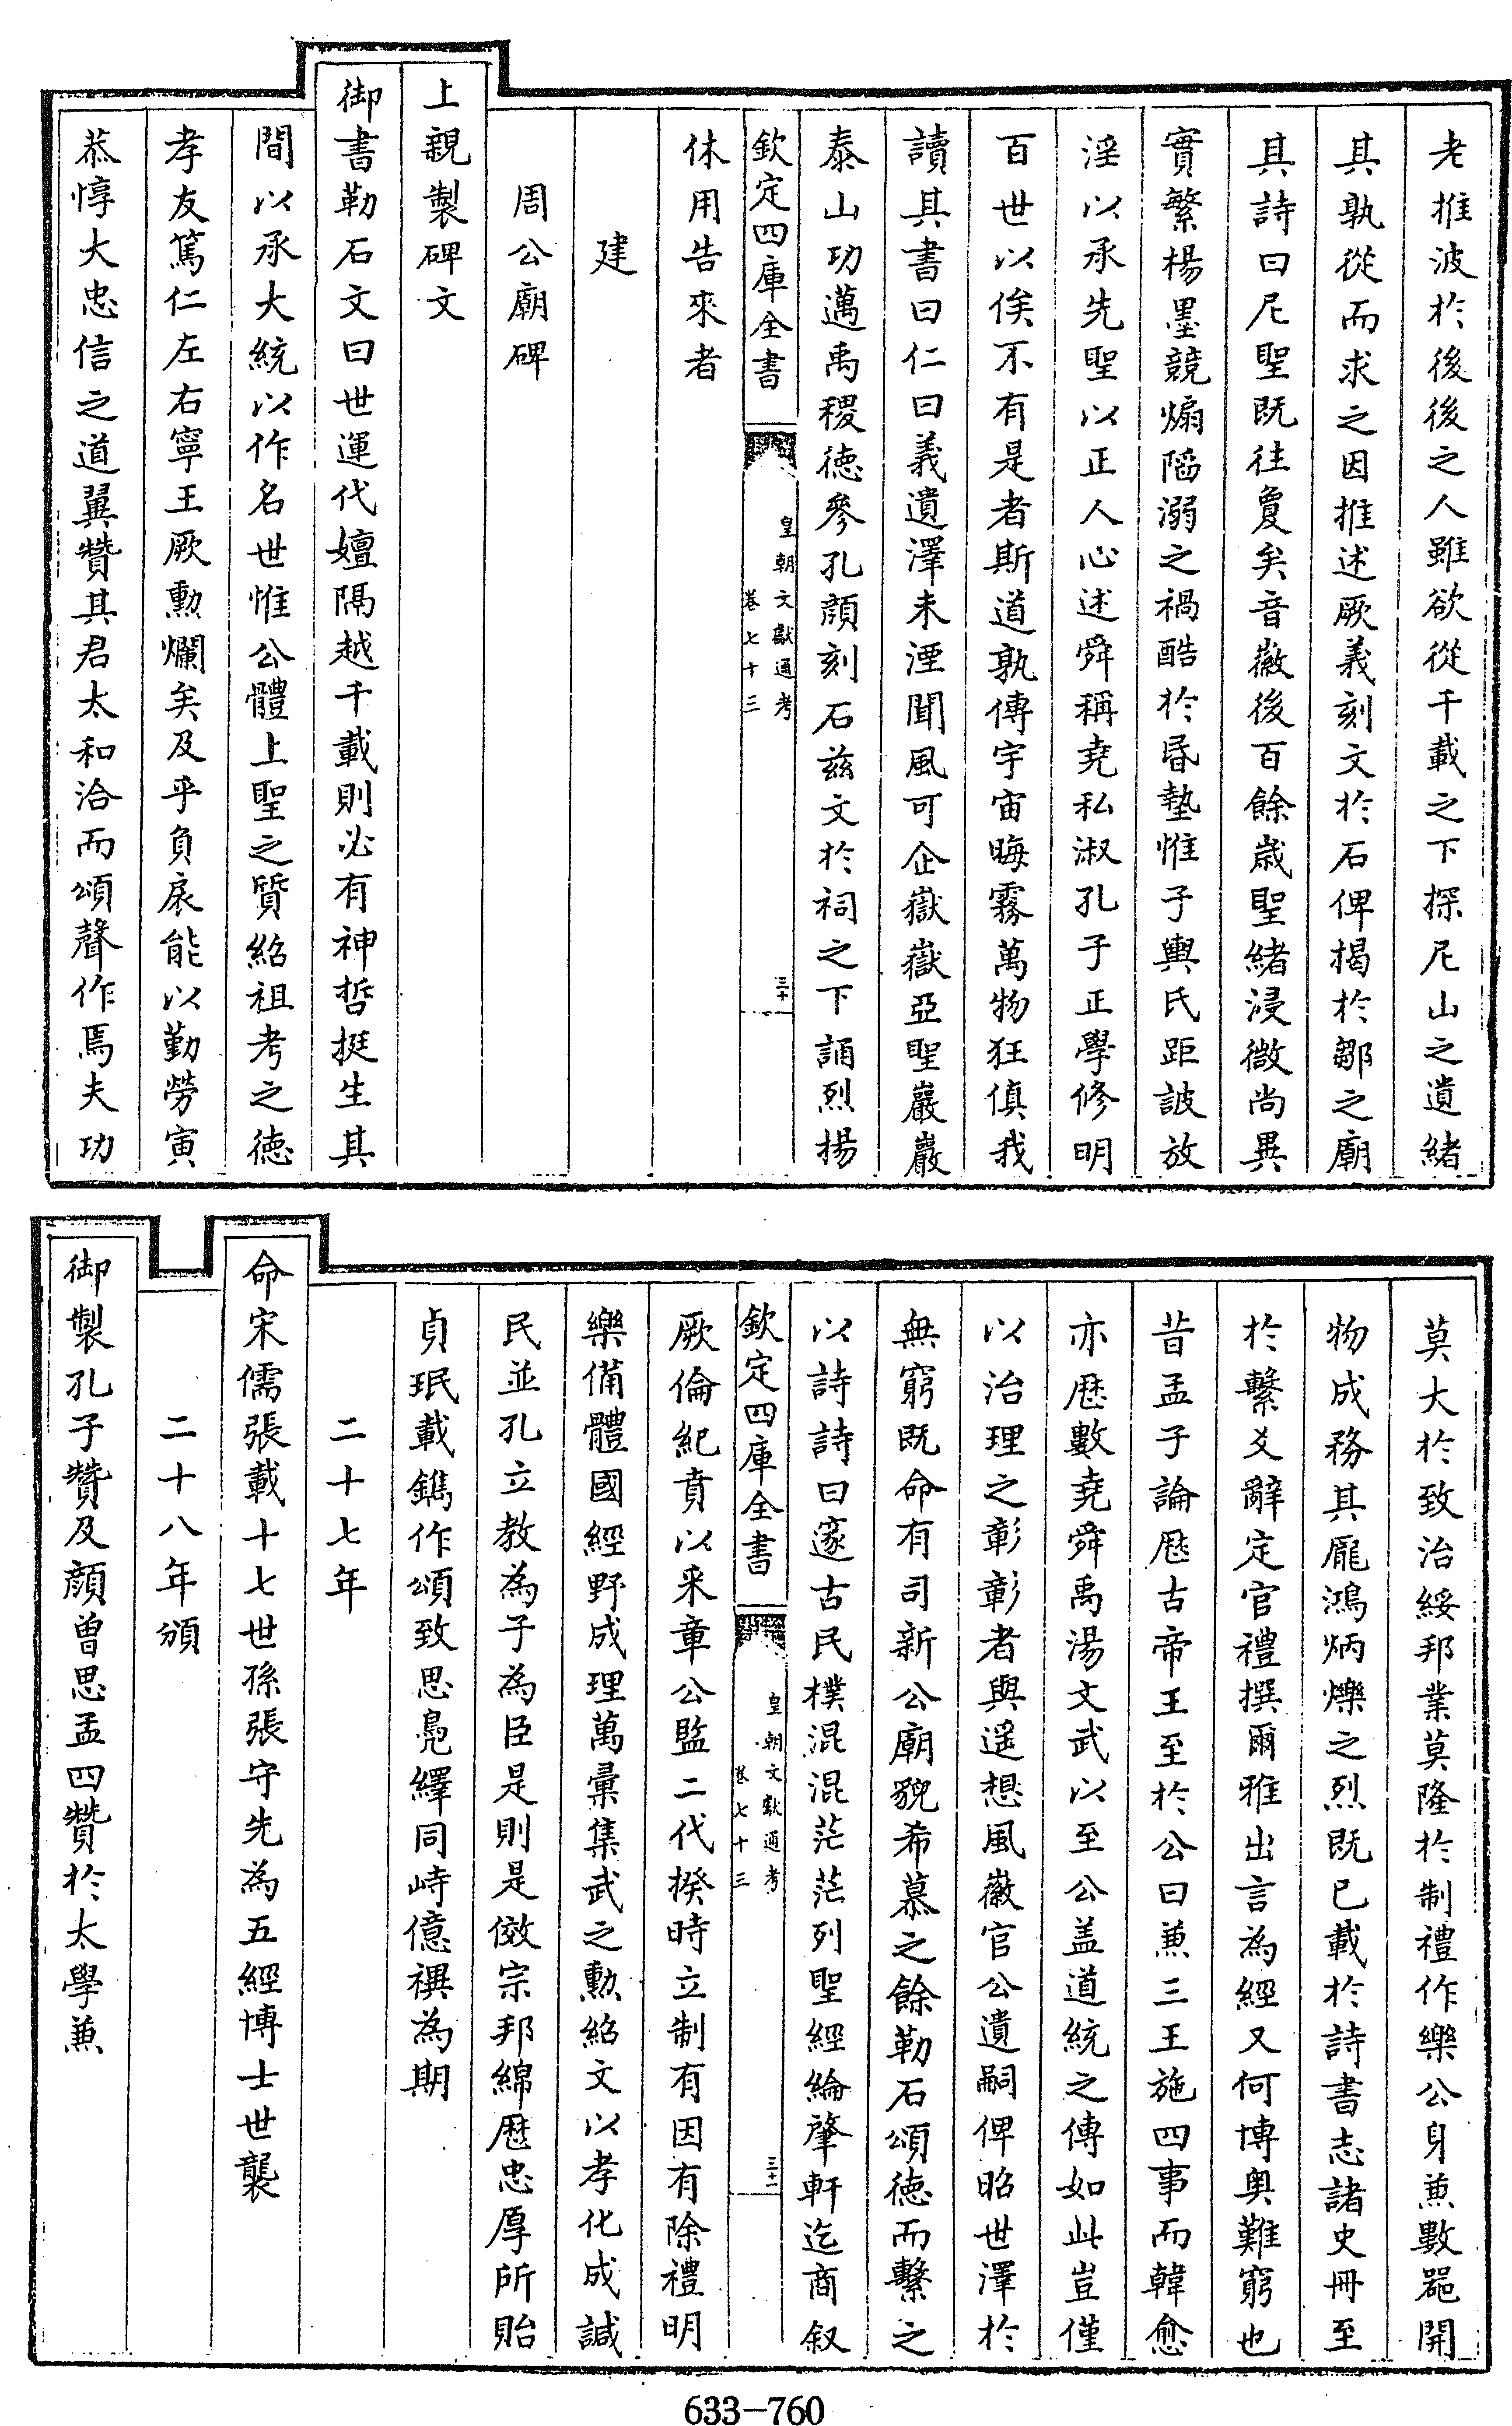 老推波於後後之人雖欲從千載之下探尼山之遺緒
其孰從而求之因推述厥義刻文於石俾揭於鄒之廟
其詩曰尼聖既往敻矣音徽後百餘歲聖緒浸微尚異
實繁楊墨競煽陷溺之禍酷於昏墊惟子輿氏距詖放
淫以承先聖以正人心述舜稱堯私淑孔子正學修明
百世以俟不有是者斯道孰傳宇宙晦霧萬物狂傎我
讀其書曰仁曰義遺澤未湮聞風可企嶽嶽亞聖巖巖
泰山功邁禹稷德參孔顔刻石茲文於祠之下誦烈揚
欽定四庫全書
皇朝文獻通考
卷七十三
三十
休用告來者
建
周公廟碑
上親製碑文
御書勒石文曰世運代嬗隔越千載則必有神哲挺生其
間以承大統以作名世惟公體上聖之質紹祖考之德
孝友篤仁左右寧王厥勳爛矣及乎負扆能以勤勞寅
恭惇大忠信之道翼贊其君太和洽而頌聲作焉夫功
莫大於致治綏邦業莫隆於制禮作樂公身兼數器開
物成務其龎鴻炳爍之烈既已載於詩書志諸史冊至
於繫爻辭定官禮撰爾雅出言為經又何博奥難窮也
昔孟子論歴古帝王至於公曰兼三王施四事而韓愈
亦歴數堯舜禹湯文武以至公盖道統之傳如此豈僅
以治理之彰彰者與遥想風徽官公遺嗣俾昭世澤於
無窮既命有司新公廟貌希慕之餘勒石頌德而繫之
以詩詩曰邃古民樸混混茫茫列聖經綸肇軒迄商叙
欽定四庫全書
皇朝文獻通考
卷七十三
三十一
厥倫紀賁以采章公監二代揆時立制有因有除禮明
樂備體國經野成理萬彚集武之勲紹文以孝化成諴
民並孔立教為子為臣是則是傚宗邦綿歴忠厚所貽
貞珉載鐫作頌致思鳧繹同峙億禩為期
二十七年
命宋儒張載十七世孫張守先為五經博士世襲
二十八年頒
御製孔子贊及顔曽思孟四贊於太學兼
633-760